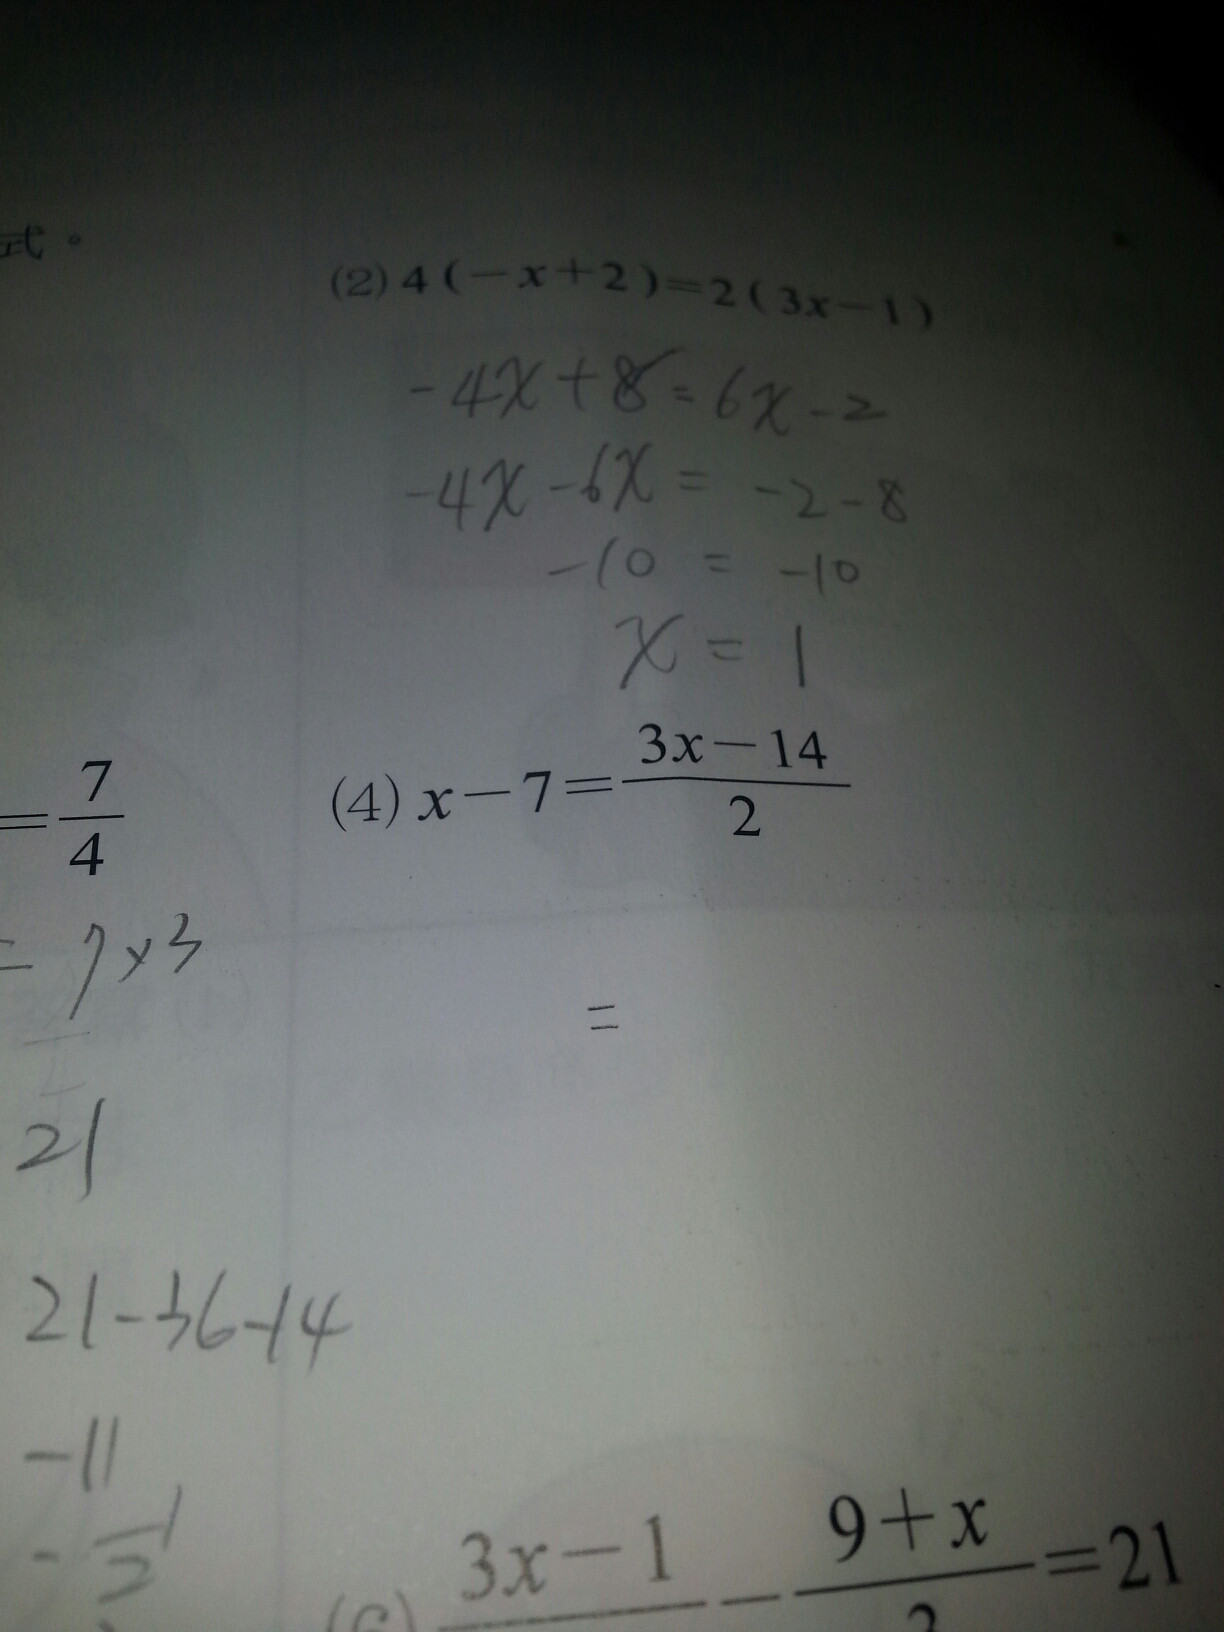 式。
(2) 4(-x+2)=2(3x-1)
-4x+8=6x-2
-4x-6x = -2-8
-10 = -10
x = 1
= 7/4
(4) x-7= (3x-14)/2
= 7x3
=
21
21-36-14
-11
3x-1 - 9+x =21